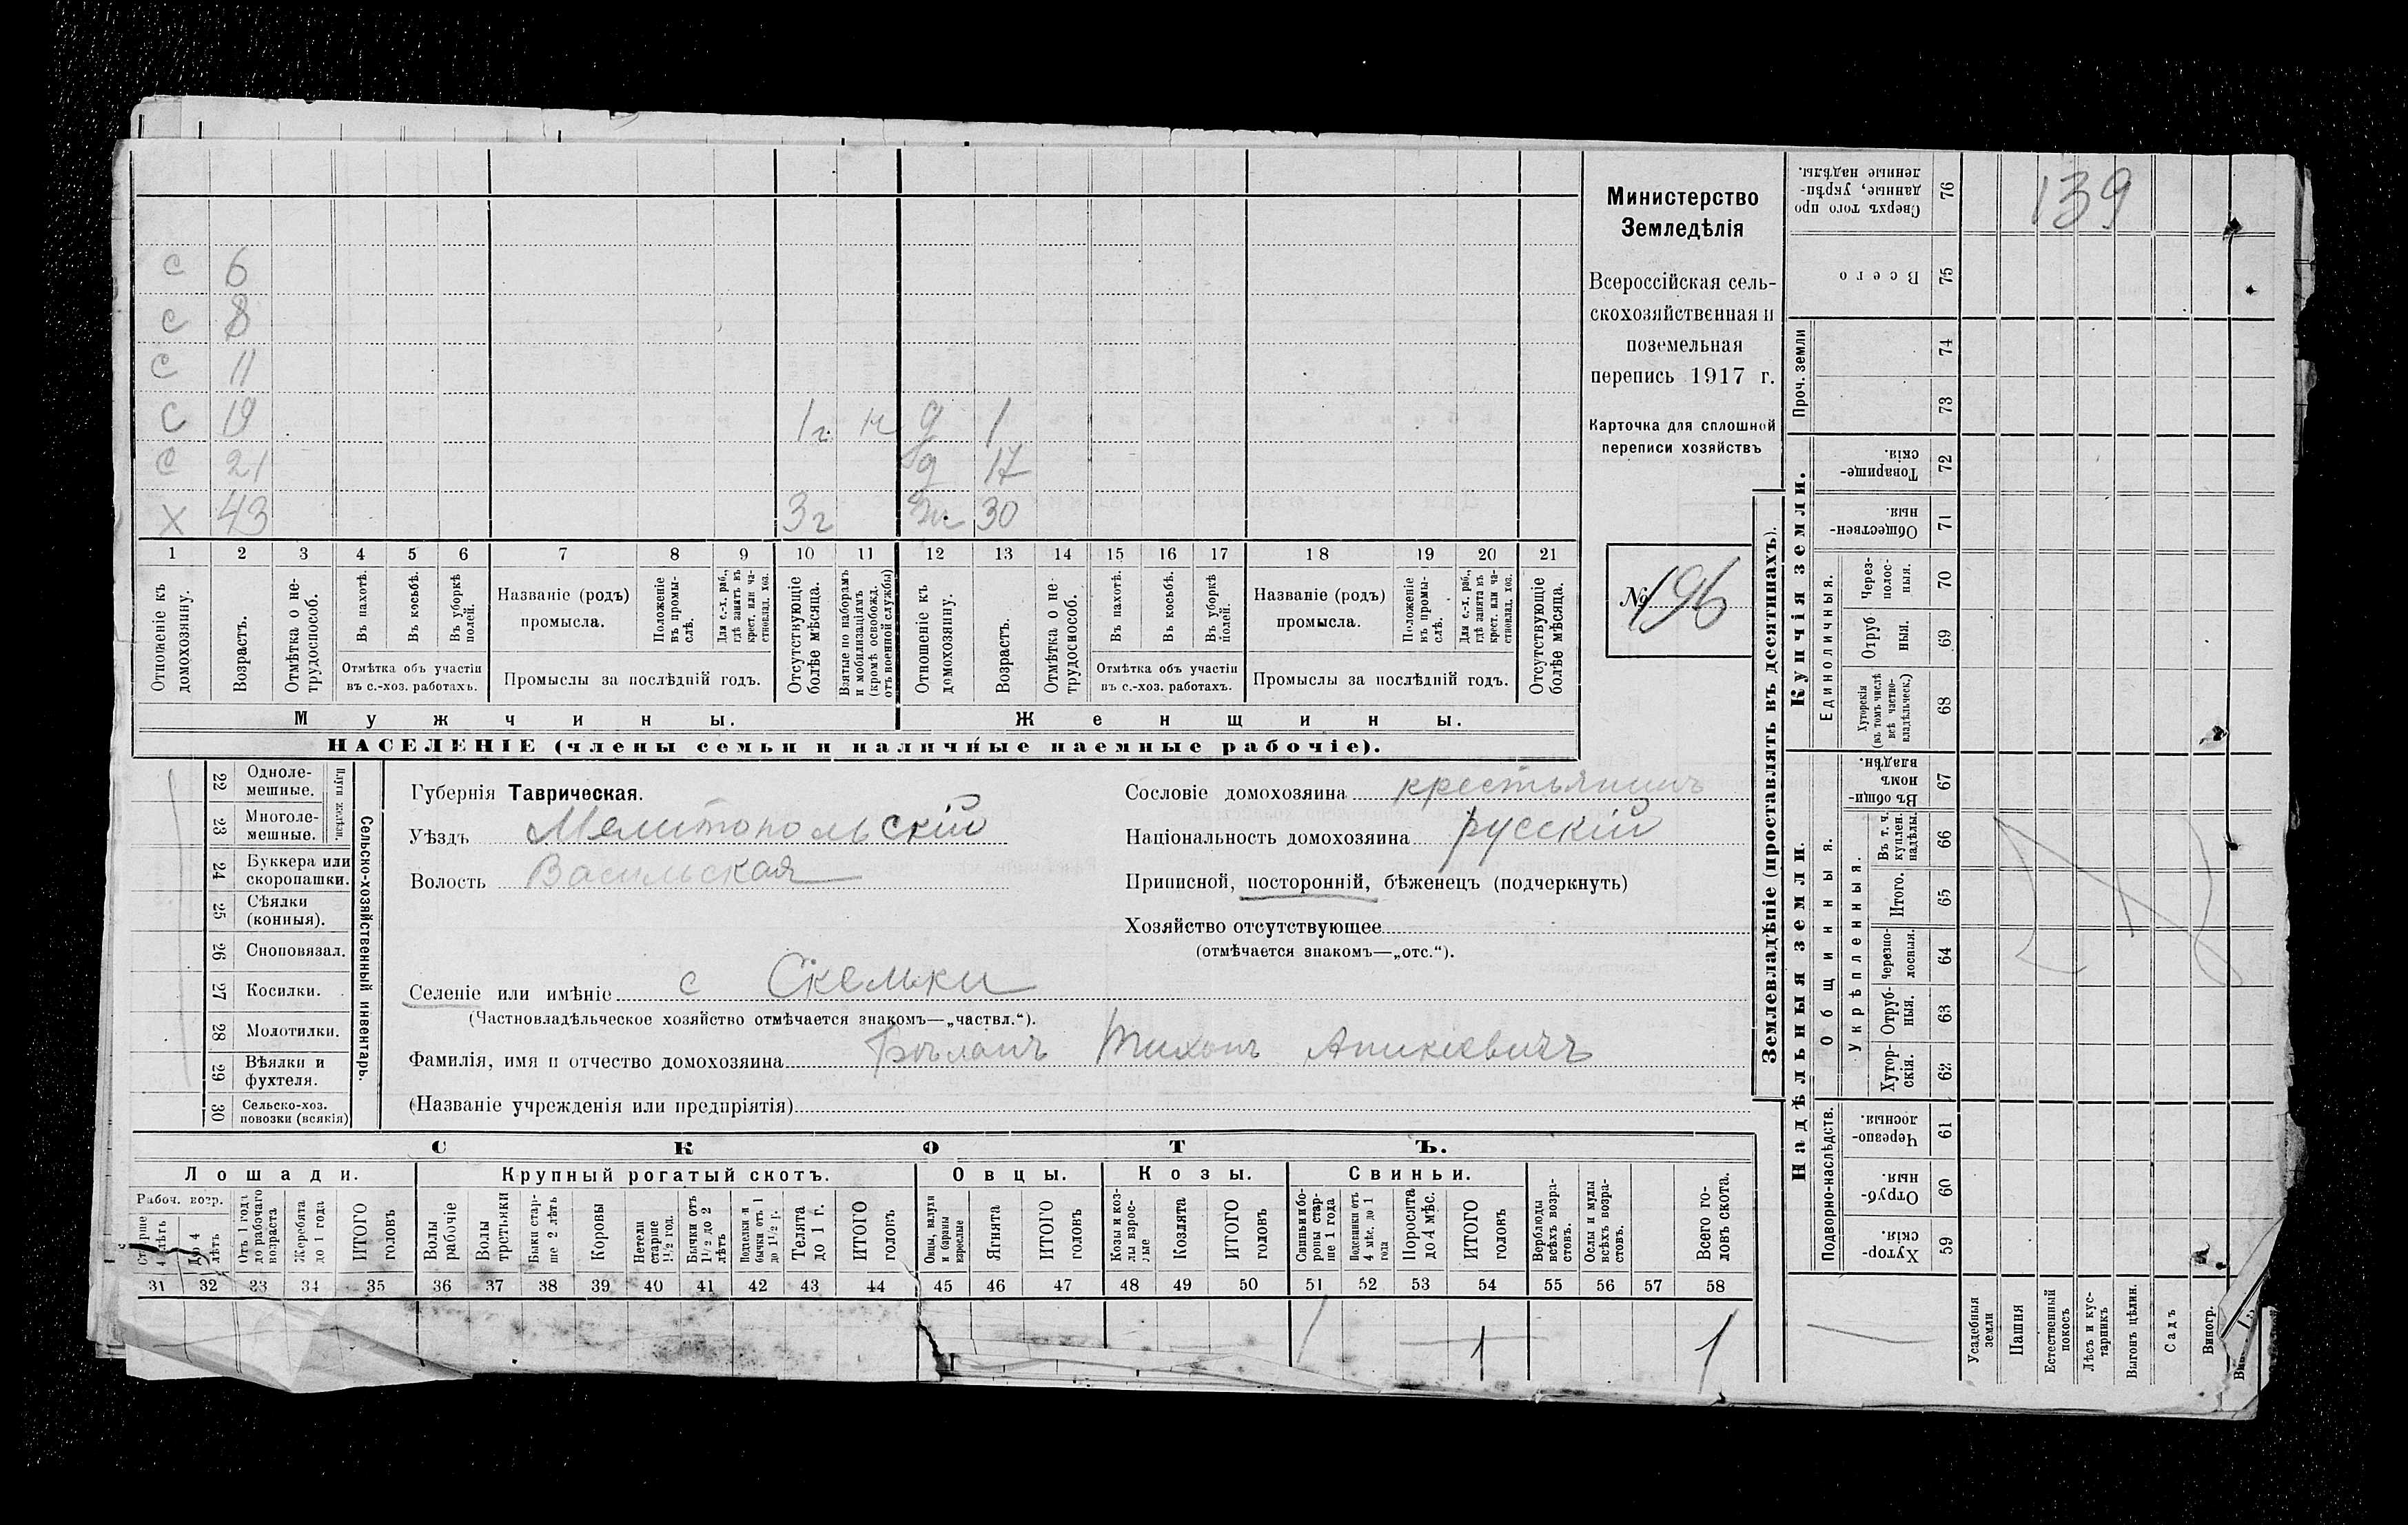 с 6
с 8
с 11
с 19 1 г. н д 1
с 21 д 17
х 43 3 г ж 30
1 2 3 4 5 6 7 8 9 10 11 12 13 14 15 16 17 18 19 20 21
Отношеніе къ домохозяину.
Возрастъ.
Отмѣтка о не-трудоспособ.
Въ пахотѣ.
Въ косьбѣ.
Въ уборкѣ полей.
Отмѣтка объ участіи
въ с.-хоз. работахъ.
Названіе (родъ)
промысла.
Положеніе въ промы-слѣ.
Для с.-х. раб., гдѣ занятъ въ крест. или ча-стновлад. хоз.
Промыслы за послѣдній годъ.
Отсутствующіе болѣе мѣсяца.
Взятые по наборамъ и мобилизаціямъ (кромѣ освобожд. отъ военной службы)
Отношеніе къ домохозяину.
Возрастъ.
Отмѣтка о не-трудоспособ.
Въ пахотѣ.
Въ косьбѣ.
Въ уборкѣ полей.
Отмѣтка объ участіи
въ с.-хоз. работахъ.
Названіе (родъ)
промысла.
Положеніе въ промы-слѣ.
Для с.-х. раб., гдѣ занята въ крест. или ча-стновлад. хоз.
Промыслы за послѣдній годъ.
Отсутствующіе болѣе мѣсяца.
Мужчины. Женщины.
НАСЕЛЕНІЕ (члены семьи и наличные наемные рабочіе).
Министерство
Земледѣлія
Всероссійская сель-
скохозяйственная и
поземельная
перепись 1917 г.
Карточка для сплошной
переписи хозяйствъ
№ 196
22 Одноле-мешные.
23 Многоле-мешные.
24 Буккера или скоропашки.
25 Сѣялки (конныя).
26 Сноповязал.
27 Косилки.
28 Молотилки.
29 Вѣялки и фухтеля.
30 Сельско-хоз. повозки (всякія)
Сельско-хозяйственный инвентарь.
Губернія Таврическая.
Уѣздъ Мелитопольскій
Волость Васильская
Сословіе домохозяина крестьянинъ
Національность домохозяина русскій
Приписной, посторонній, бѣженецъ (подчеркнуть)
Хозяйство отсутствующее
(отмѣчается знакомъ—„отс.“).
Селеніе или имѣніе с Скельки
(Частновладѣльческое хозяйство отмѣчается знакомъ—„частвл.“).
Фамилія, имя и отчество домохозяина Тихонъ Аникіевичъ
(Названіе учрежденія или предпріятія)
СКОТЪ.
Лошади. Крупный рогатый скотъ. Овцы. Козы. Свиньи.
Рабоч. возр.
Старше 4 лѣтъ
До 4 лѣтъ
Отъ 1 года до рабочаго возраста
Жеребята до 1 года
ИТОГО головъ
Волы рабочіе
Волы третьяки
Быки стар-ше 2 лѣтъ
Коровы
Нетели старше 1½ год.
Бычки отъ 1½ до 2 лѣтъ
Подтелки и бычки отъ 1 до 1½ г.
Телята до 1 г.
ИТОГО головъ
Овцы, валухи и бараны взрослые
Ягнята
ИТОГО головъ
Козы и коз-лы взрос-лые
Козлята
ИТОГО головъ
Свиньи и бо-ровы стар-ше 1 года
Подсвинки отъ 4 мѣс. до 1 года
Поросята до 4 мѣс.
ИТОГО головъ
Верблюды всѣхъ возра-стовъ.
Ослы и мулы всѣхъ возра-стовъ.
Всего го-ловъ скота.
31 32 33 34 35 36 37 38 39 40 41 42 43 44 45 46 47 48 49 50 51 52 53 54 55 56 57 58
1 1 1
Землевладѣніе (проставлять въ десятинахъ).
Купчія земли.
Надѣльныя земли.
139
Сверхъ того про-данные, укрѣп-ленные надѣлы. 76
Всего 75
Проч. земли 74
73
Товарище-скія. 72
Обществен-ныя. 71
Единоличныя.
Через-полос-ныя. 70
Отруб-ныя. 69
Хуторскія (въ томъ числѣ всѣ частно-владѣльческ.) 68
Общинныя.
Въ общи-номъ владѣн. 67
Укрѣпленныя.
Въ т. ч. куплен. надѣлы. 66
Итого. 65
Черезпо-лосныя. 64
Отруб-ныя. 63
Хутор-скія. 62
Подворно-наслѣдств.
Черезпо-лосныя 61
Отруб-ныя. 60
Хутор-скія. 59
Усадебныя земли
Пашня
Естественный покосъ
Лѣсъ и кус-тарникъ
Выгонъ цѣлин.
Садъ
Виногр.